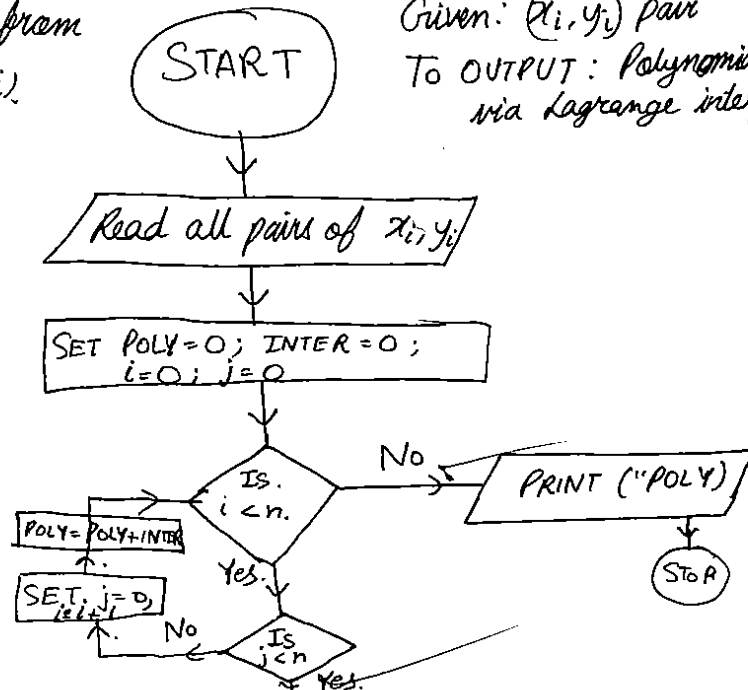 from
i)
START
Given: (xi, yi) pair
To OUTPUT: Polynomia
via Lagrange inte
Read all pairs of xi, yi
SET POLY=0; INTER=0;
i=0; j=0
Is.
i<n.
No
PRINT ("POLY)
STOP
POLY=POLY+INTER
Yes.
SET. j=0,
i=i+1
No
Is
j<n
Yes.